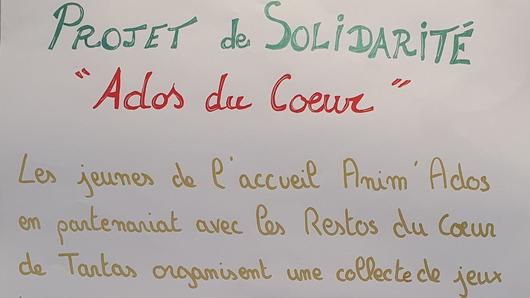 PROJET de SOLIDARITÉ
"Ados du Coeur"
Les jeunes de l'accueil Anim'Ados
en partenariat avec les Restos du Coeur
de Tartas organisent une collecte de jeux